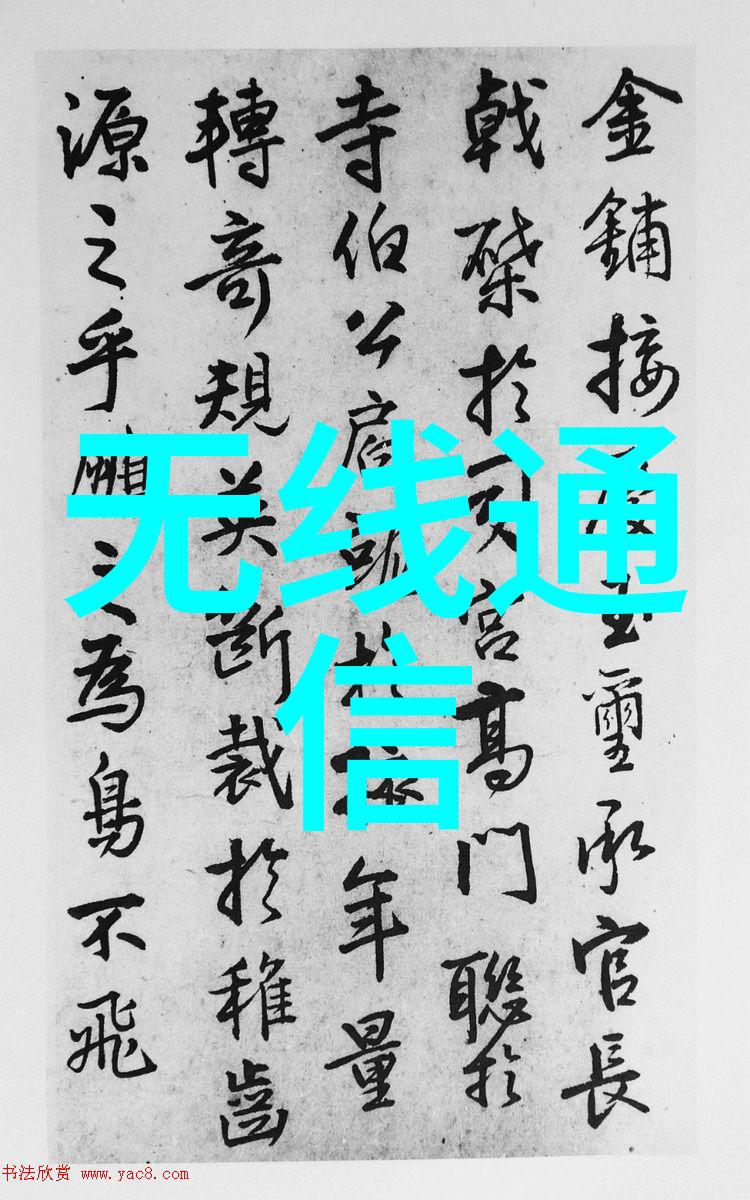 金鋪接玉璽承官長
戟棨於宮高門聯於
寺伯公於年量
轉奇規英斷裁於稚齒
源之乎鵬之為鳥不飛
无线通
信
书法欣赏 www.yac8.com